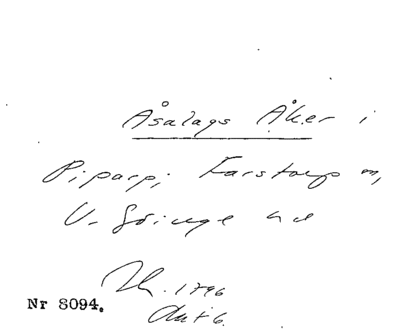 Åsalags Åker i
Piparp; Farstorp m,
V. Göinge hd
Th. 1796
Akt 6.
Nr 8094.